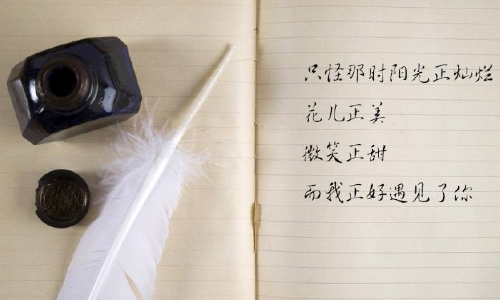 只怪那时阳光正灿烂
花儿正美
微笑正甜
而我正好遇见了你